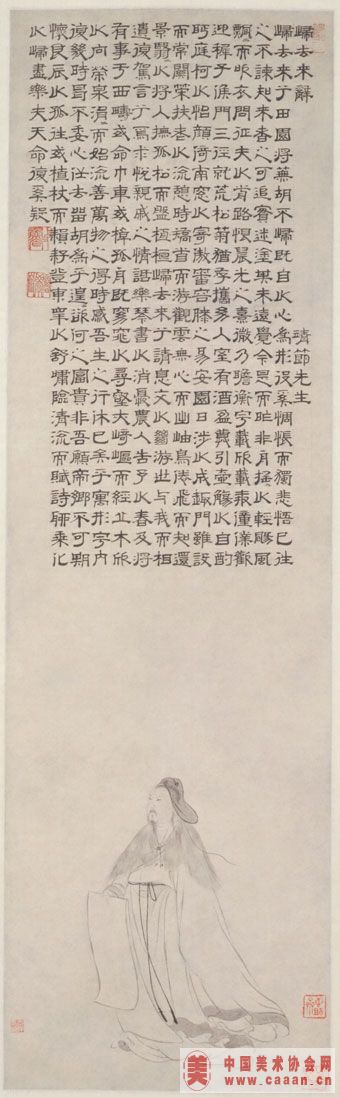 歸去來辭
靖節先生
歸去來兮田園將蕪胡不歸既自以心為形役奚惆悵而獨悲悟已往
之不諫知來者之可追實迷塗其未遠覺今是而昨非舟搖以輕颺風
飄而吹衣問征夫以前路恨晨光之熹微乃瞻衡宇載欣載奔僮僕歡
迎稚子候門三徑就荒松菊猶存攜幼入室有酒盈樽引壺觴以自酌
眄庭柯以怡顏倚南窗以寄傲審容膝之易安園日涉以成趣門雖設
而常關策扶老以流憩時矯首而游觀雲無心而出岫鳥倦飛而知還
景翳〻以將入撫孤松而盤桓歸去來兮請息交以絕游世與我而相
遺復駕言兮焉求悅親戚之情話樂琴書以消憂農人告予以春及將
有事乎西疇或命巾車或棹孤舟既窈窕以尋壑亦崎嶇而經丘木欣
〻以向榮泉涓〻而始流善萬物之得時感吾生之行休已矣乎寓形宇內
復幾時曷不委心任去留胡為乎遑〻欲何之富貴非吾願帝鄉不可期
懷良辰以孤往或植杖而耘耔登東皋以舒嘯臨清流而賦詩聊乘化
以歸盡樂夫天命復奚疑
美
中国美术协会网
www.caaan.cn